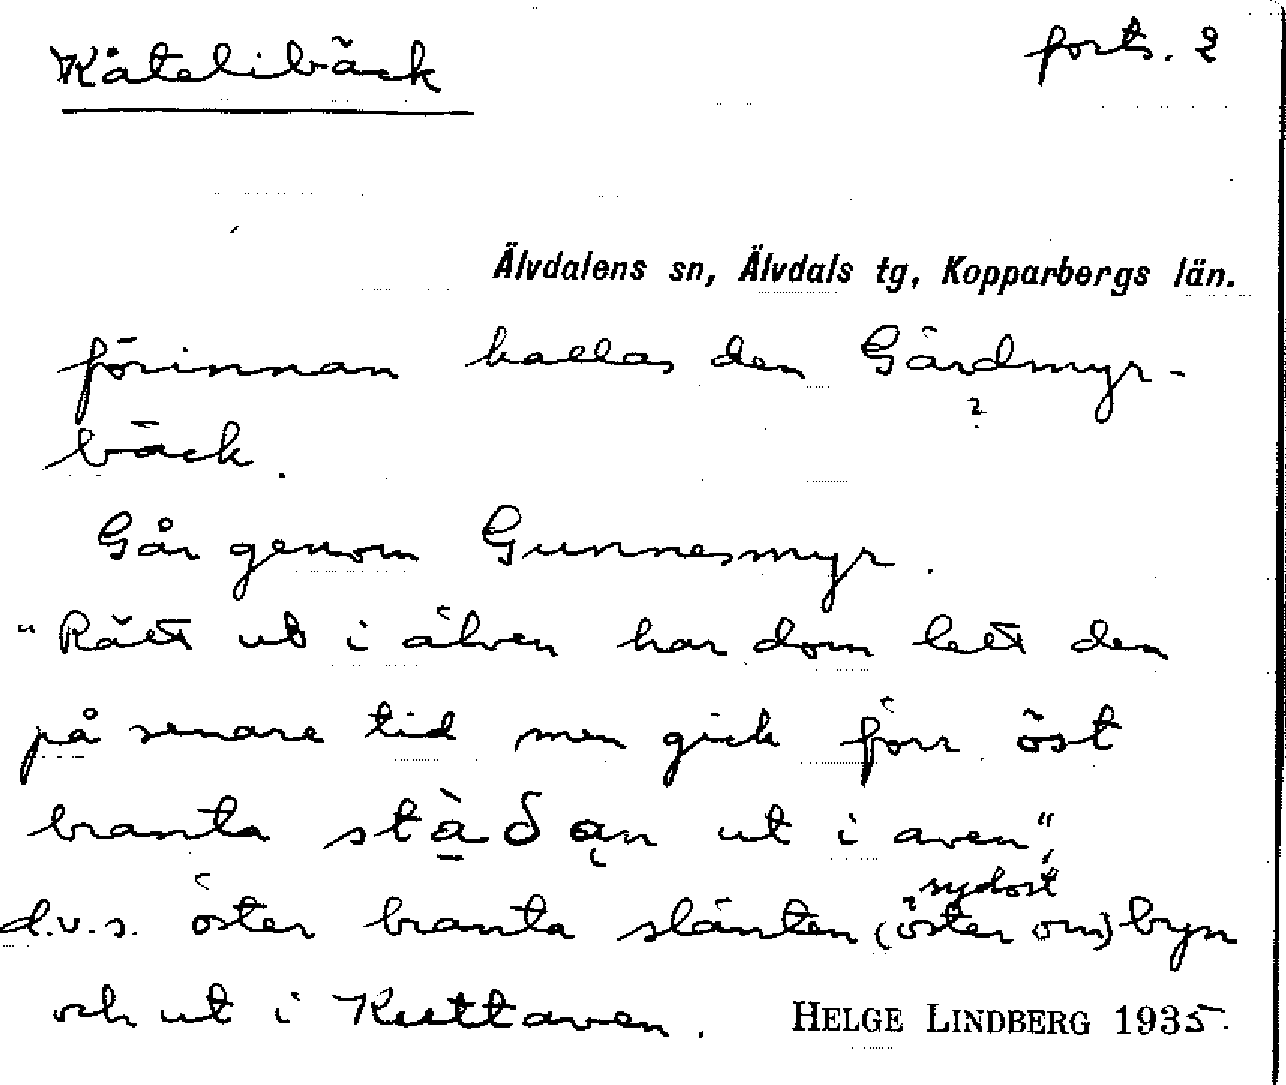 Kåtelibäck forts. 2
Älvdalens sn, Älvdals tg, Kopparbergs län.
förinnan kallas den Gärdmyr-
?
bäck.
Går genom Gunnesmyr.
"Rätt ut i älven har dom lett den
på senare tid men gick förr öst
branta stàðan ut i aven",
sydost
d.v.s. öster branta slänten (öster om) byn
och ut i Kuttaven. HELGE LINDBERG 1935.